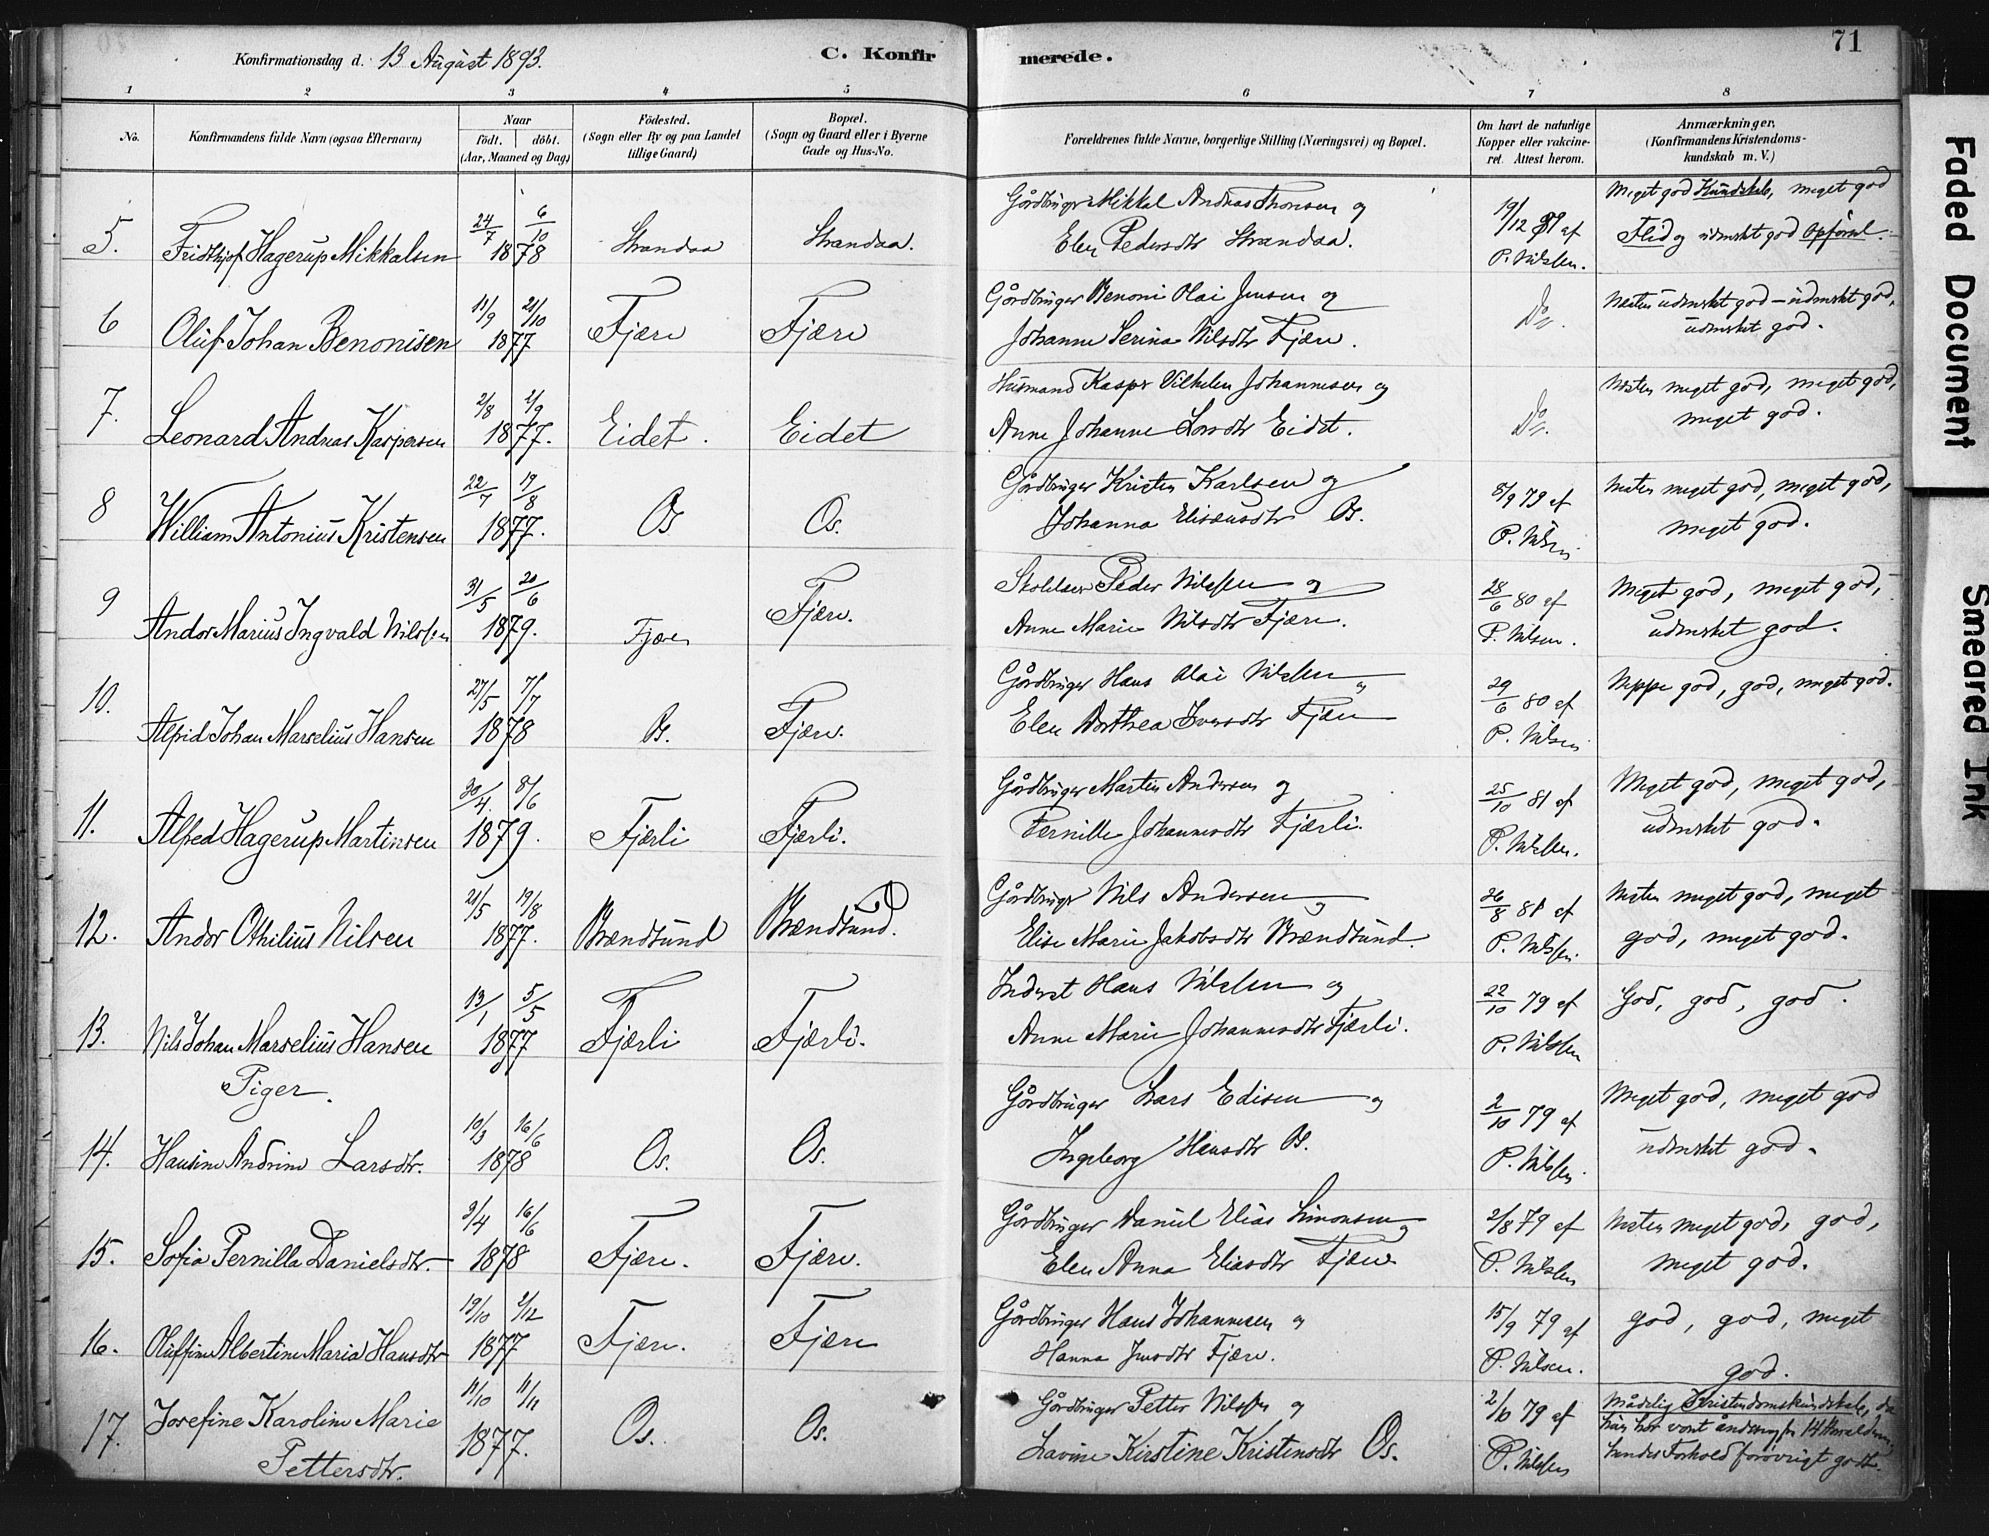 71
Konfirmationsdag d. 13 August 1893.
C. Konfirmerede.
1 2 3 4 5 6 7 8
No.
Konfirmandens fulde Navn (ogsaa Efternavn)
Naar
födt. döbt.
(Aar, Maaned og Dag)
Födested.
(Sogn eller By og paa Landet
tillige Gaard)
Bopæl.
(Sogn og Gaard eller i Byerne
Gade og Hus-No.
Forældrenes fulde Navne, borgerlige Stilling (Næringsvei) og Bopæl.
Om havt de naturlige
Kopper eller vakcine-
ret. Attest herom.
Anmærkninger,
(Konfirmandens Kristendoms-
kundskab m. V.)
5. Fridthjof Hagerup Mikkalsen 24/7 6/10 1878 Strandaa Strandaa.
Gårdbruger Mikkal Andreas Thonsen og
Elen Pedersdtr Strandaa.
19/12 81 af
P. Nilssen.
Meget god Kundskab, meget god
Flid og udmrkt god Opførsel.
6 Oluf Johan Benonisen 11/9 21/10 1877 Fjære Fjære
Gårdbruger Benoni Olai Jensen og
Johanne Serina Nilsdtr Fjære.
Do
Næsten udmrkt god - udmrkt god,
udmrkt god.
7. Leonard Andreas Kaspersen 2/8 2/9 1877. Eidet. Eidet
Husmand Kaspr Vilhelm Johannesen og
Anne Johanne Larsdtr Eidet.
Do
Næsten meget god, meget god,
meget god.
8 William Antonius Kristensen 22/7 19/8 1877. Os Os.
Gårdbruger Kristen Karlsen og
Johanna Elisæusdtr Os.
8/9 79 af
P. Nilsen
Næsten meget god, meget god,
meget god.
9 Andor Marius Ingvald Nilssen 31/5 20/6 1879. Fjære Fjære.
Skolelærer Peder Nilssen og
Anne Marie Nilsdtr Fjære.
28/6 80 af
P. Nilsen.
Meget god, meget god,
udmrket god.
10. Alfrid Johan Marselius Hansen 27/5 7/7 1878 Os. Fjære.
Gårdbruger Hans Olai Nilssen og
Elen Dorthea Iversdtr Fjære
29/6 80 af
P. Nilsen
Neppe god, god, meget god.
11. Alfred Hagerup Martinsen 30/4. 8/6 1879. Fjærli Fjærli.
Gårdbruger Martin Andersen og
Pernille Johannesdtr Fjærli.
25/10 81 af
P. Nilssen.
Meget god, meget god,
udmrket god.
12. Andor Othilius Nilsen 21/5 19/8 1877. Brændsund Brændsund.
Gårdbruger Nils Andersen og
Elise Marie Jakobsdtr Brændsund.
26/8 81 af
P. Nilssen.
Næsten meget god, meget
god, meget god.
13. Nils Johan Marselius Hansen 13/1 5/5 1877 Fjærli Fjærli.
Inderst Hans Nilssen og
Anne Marie Johannesdtr Fjærli.
22/10 79 af
P. Nilssen
God, god, god.
Piger.
14. Hansine Andrine Larsdtr. 10/3 16/6 1878 Os. Os.
Gårdbruger Lars Edisen og
Ingeborg Hansdtr Os.
2/10 79 af
P. Nilssen.
Meget god, meget god
udmrket god.
15. Sofia Pernilla Danielsdtr. 3/4 16/6 1878 Fjære. Fjære.
Gårdbruger Daniel Elias Simonsen og
Elen Anna Eliasdtr Fjære
2/8 79 af
P. Nilssen
Næsten meget god, god,
meget god.
16. Oluffine Albertine Maria Hansdtr 19/10 2/12 1877 Fjære. Fjære
Gårdbruger Hans Johannesen og
Hanna Jensdtr Fjære.
15/9 79 af
P. Nilsen.
god, god, meget
god.
17. Josefine Karoline Marie
Pettersdtr. 11/10 11/11 1877. Os. Os.
Gårdbruger Petter Nilssen og
Lavine Kirstine Kristensdtr Os.
2/10 79 af
P. Nilssen
Mådelig Kristendomskundskab, da
hun har vært
hendes Forhold forøvrigt godt.
Faded Document
Smeared Ink